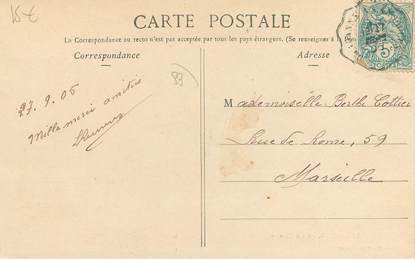 15€
CARTE POSTALE
La Correspondance au recto n'est pas acceptée par tous les pays étrangers. (Se renseigner à
Correspondance
Adresse
83
5c
27.9.05
Mille merci amitiés
Mademoiselle Berthe Collier
Rue de Rome, 59
Marseille